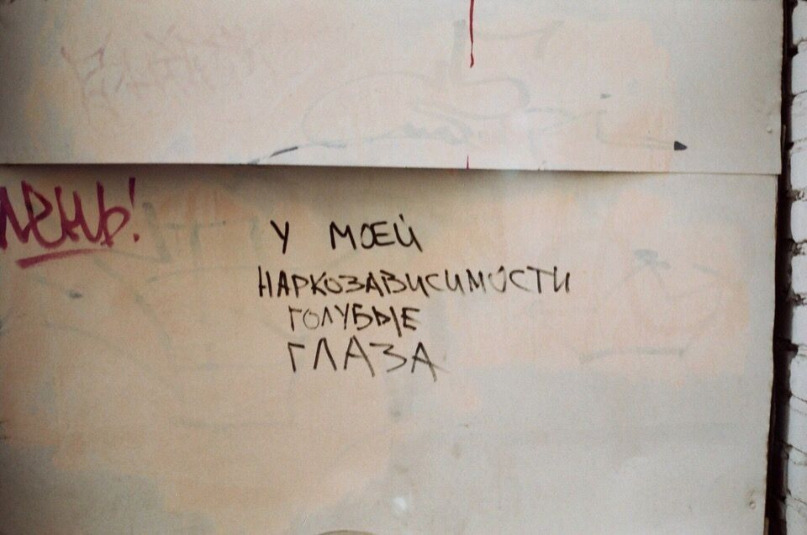 У МОЕЙ
НАРКОЗАВИСИМОСТИ
ГОЛУБЫЕ
ГЛАЗА